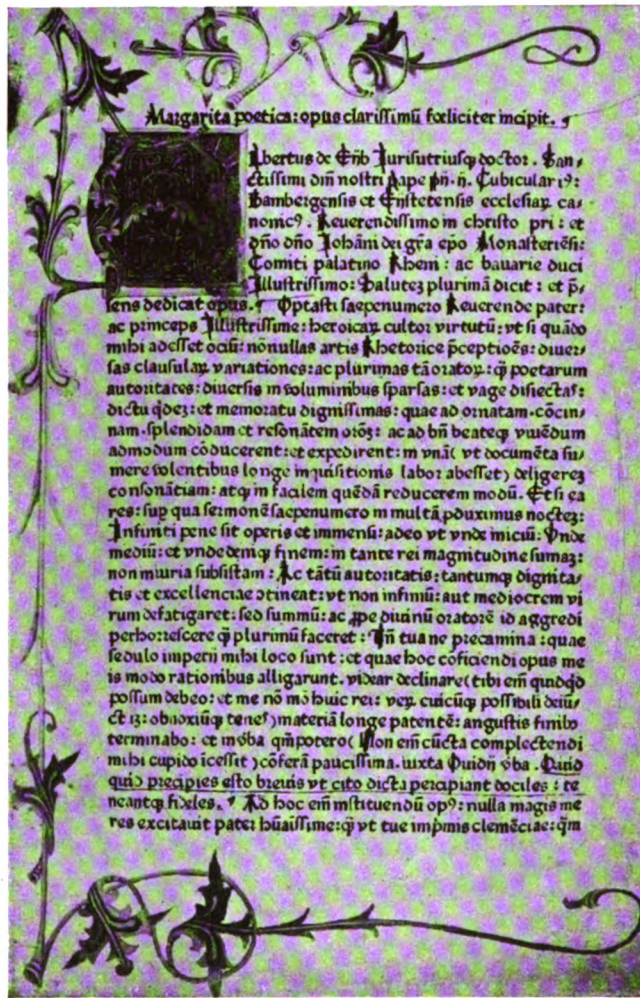 Margarita poetica: opus clarissimū fœliciter incipit.
Albertus de Eyb Jurisutriusq̨ doctor. San-
ctissimi dm̄ nostri Pape Pii. ii. Cubiculariꝰ:
Bambergensis et Enstetensis ecclesiaꝝ ca-
nonicꝰ. Reuerendissimo in christo pri: et
dn̄o dn̄o Johāni dei gr̄a epo Monasteriēsi:
Comiti palatino Rheni: ac bauarie duci
Illustrissimo: Salutez plurimā dicit: et p̄-
sens dedicat opus. Optasti saepenumero Reuerende pater:
ac princeps Illustrissime: heroicaꝝ cultor virtutū: vt si quādo
mihi adesset ociū: nōnullas artis Rhetorice p̄ceptiōes: diuer-
sas clausulaꝝ variationes: ac plurimas tā oratoꝝ: q̄ꝫ poetarum
autoritates: diuersis in voluminibus sparsas: et vage disiectas:
dictu q̇dez: et memoratu dignissimas: quae ad ornatam. cōcin-
nam. splendidam et resonātem orōꝫ: ac ad bn̄ beateq̨ viuēdum
admodum cōducerent: et expedirent: in vnā( vt documēta su-
mere volentibus longe inquisitionis labor abesset) deligerez
consonātiam: atq̨ in facilem quēdā reducerem modū. Et si ea
res: sup qua sermonē saepenumero in multā ꝓduximus noctez:
Infiniti pene sit operis et immensi: adeo vt vnde iniciū: Vnde
mediū: et vndedemq̨ finem: in tante rei magnitudine sumaꝫ:
non iniuria subsistam: Ac tātū autoritatis: tantumq̨ dignita-
tis et excellenciae ↄtineat: vt non infimū: aut mediocrem vi
rum defatigaret: sed summū: ac ꝓpe diuinū oratorē id aggredi
perhorrescere q̄ꝫ plurimū faceret: Tn̄ tua ne precamina: quae
sedulo imperii mihi loco sunt: et quae hoc cōficiendi opus me
is modo rationibus alligarunt. videar declinare( tibi em̄ quidq̇d
possum debeo: et me nō mō huic rei: veꝝ cuicūq̨ possibili deui-
ct iꝫ: obnoxiūq̨ tenes) materiā longe patentē: angustis finibꝰ
terminabo: et in v̄ba qm̄ potero( Non em̄ cūcta complectendi
mihi cupido īcessit) cōferā paucissima. iuxta Quidn̄ v̄ba. Quid
quid precipies esto breuis vt cito dicta percipiant dociles: te
neantq̨ fideles. Ad hoc em̄ instituendū opꝰ: nulla magis me
res excitauit pater hūaīssime: q̄ꝫ vt tue inp̄mis clemēciae: q̄m